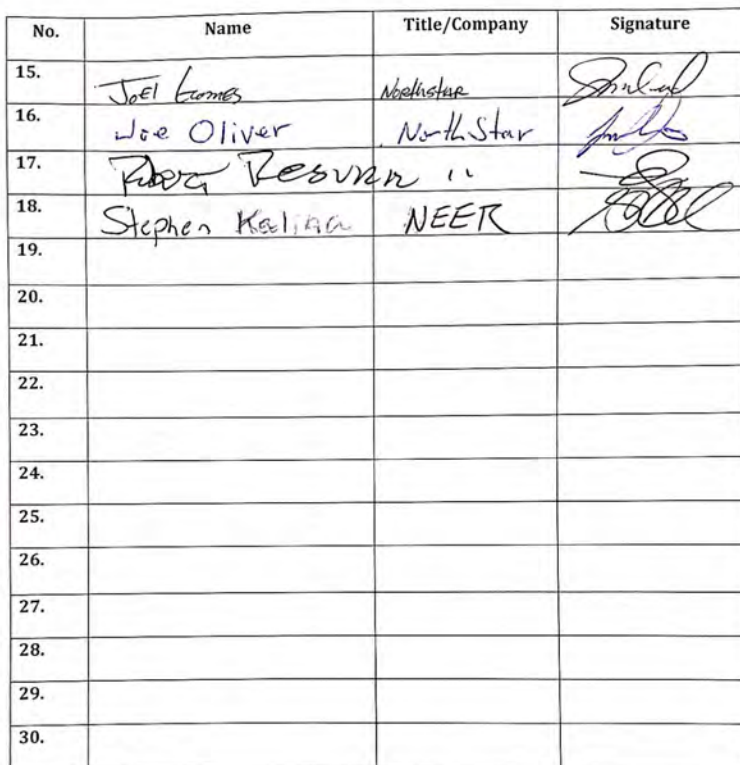 No. Name Title/Company Signature
15. Joel Gomes Northstar
16. Joe Oliver NorthStar
17. "
18. Stephen Kalina NEER
19.
20.
21.
22.
23.
24.
25.
26.
27.
28.
29.
30.